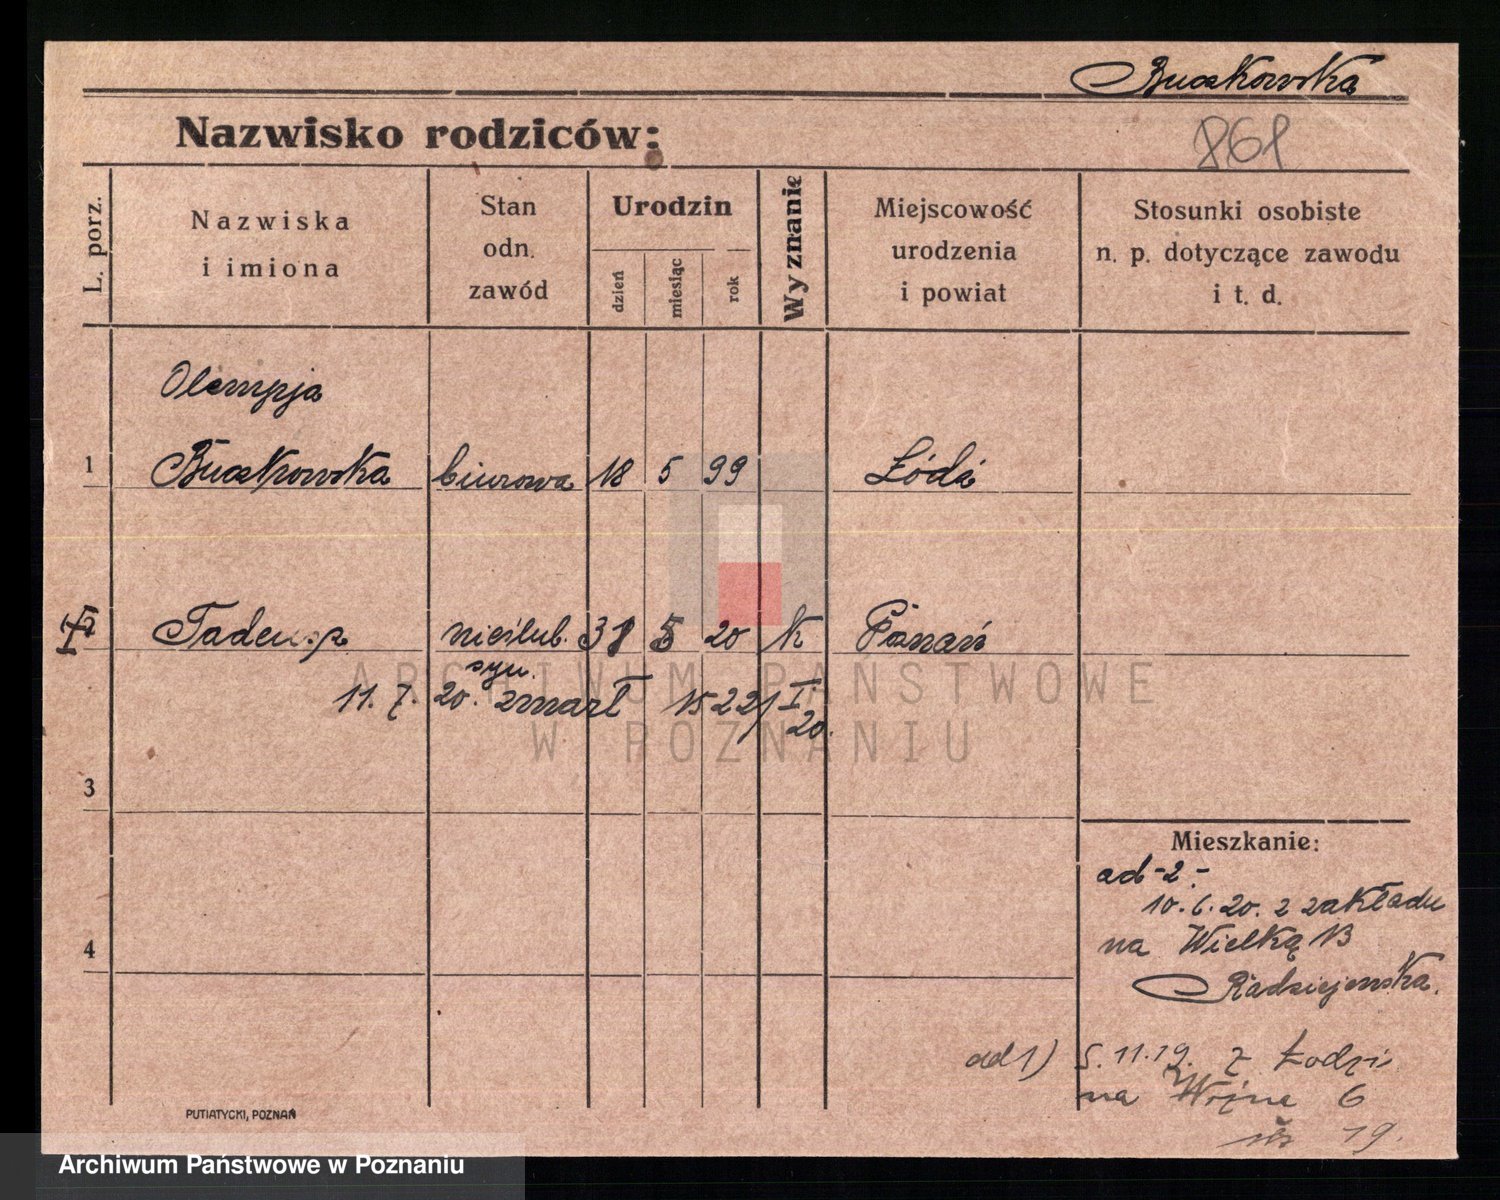 Buczkowska
Nazwisko rodziców:
861
L. porz.
Nazwiska
i imiona
Stan
odn.
zawód
Urodzin
dzień
miesiąc
rok
Wyznanie
Miejscowość
urodzenia
i powiat
Stosunki osobiste
n. p. dotyczące zawodu
i t. d.
Olempja
1 Buczkowska biurowa 18 5 99 Łódź
2 Tadeusz nieślub. 31 5 20 k Poznań
syn.
11. 7. 20. zmarł 1522/I.
20.
3
4
Mieszkanie:
ad -2-
10. 6. 20. z zakładu
na Wielką 13
Radziejewska.
ad 1) 5. 11. 19. z Łodzi
na Wojne 6
19.
PUTIATYCKI, POZNAŃ
ARCHIWUM PAŃSTWOWE
W POZNANIU
Archiwum Państwowe w Poznaniu